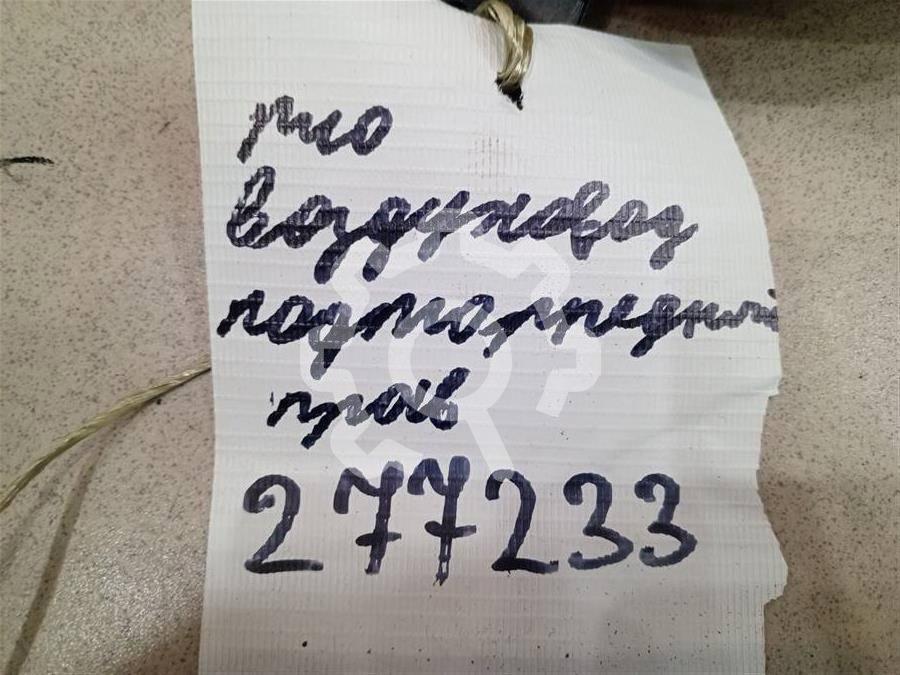 рио
воздуховод
подторпедный
прав
277233